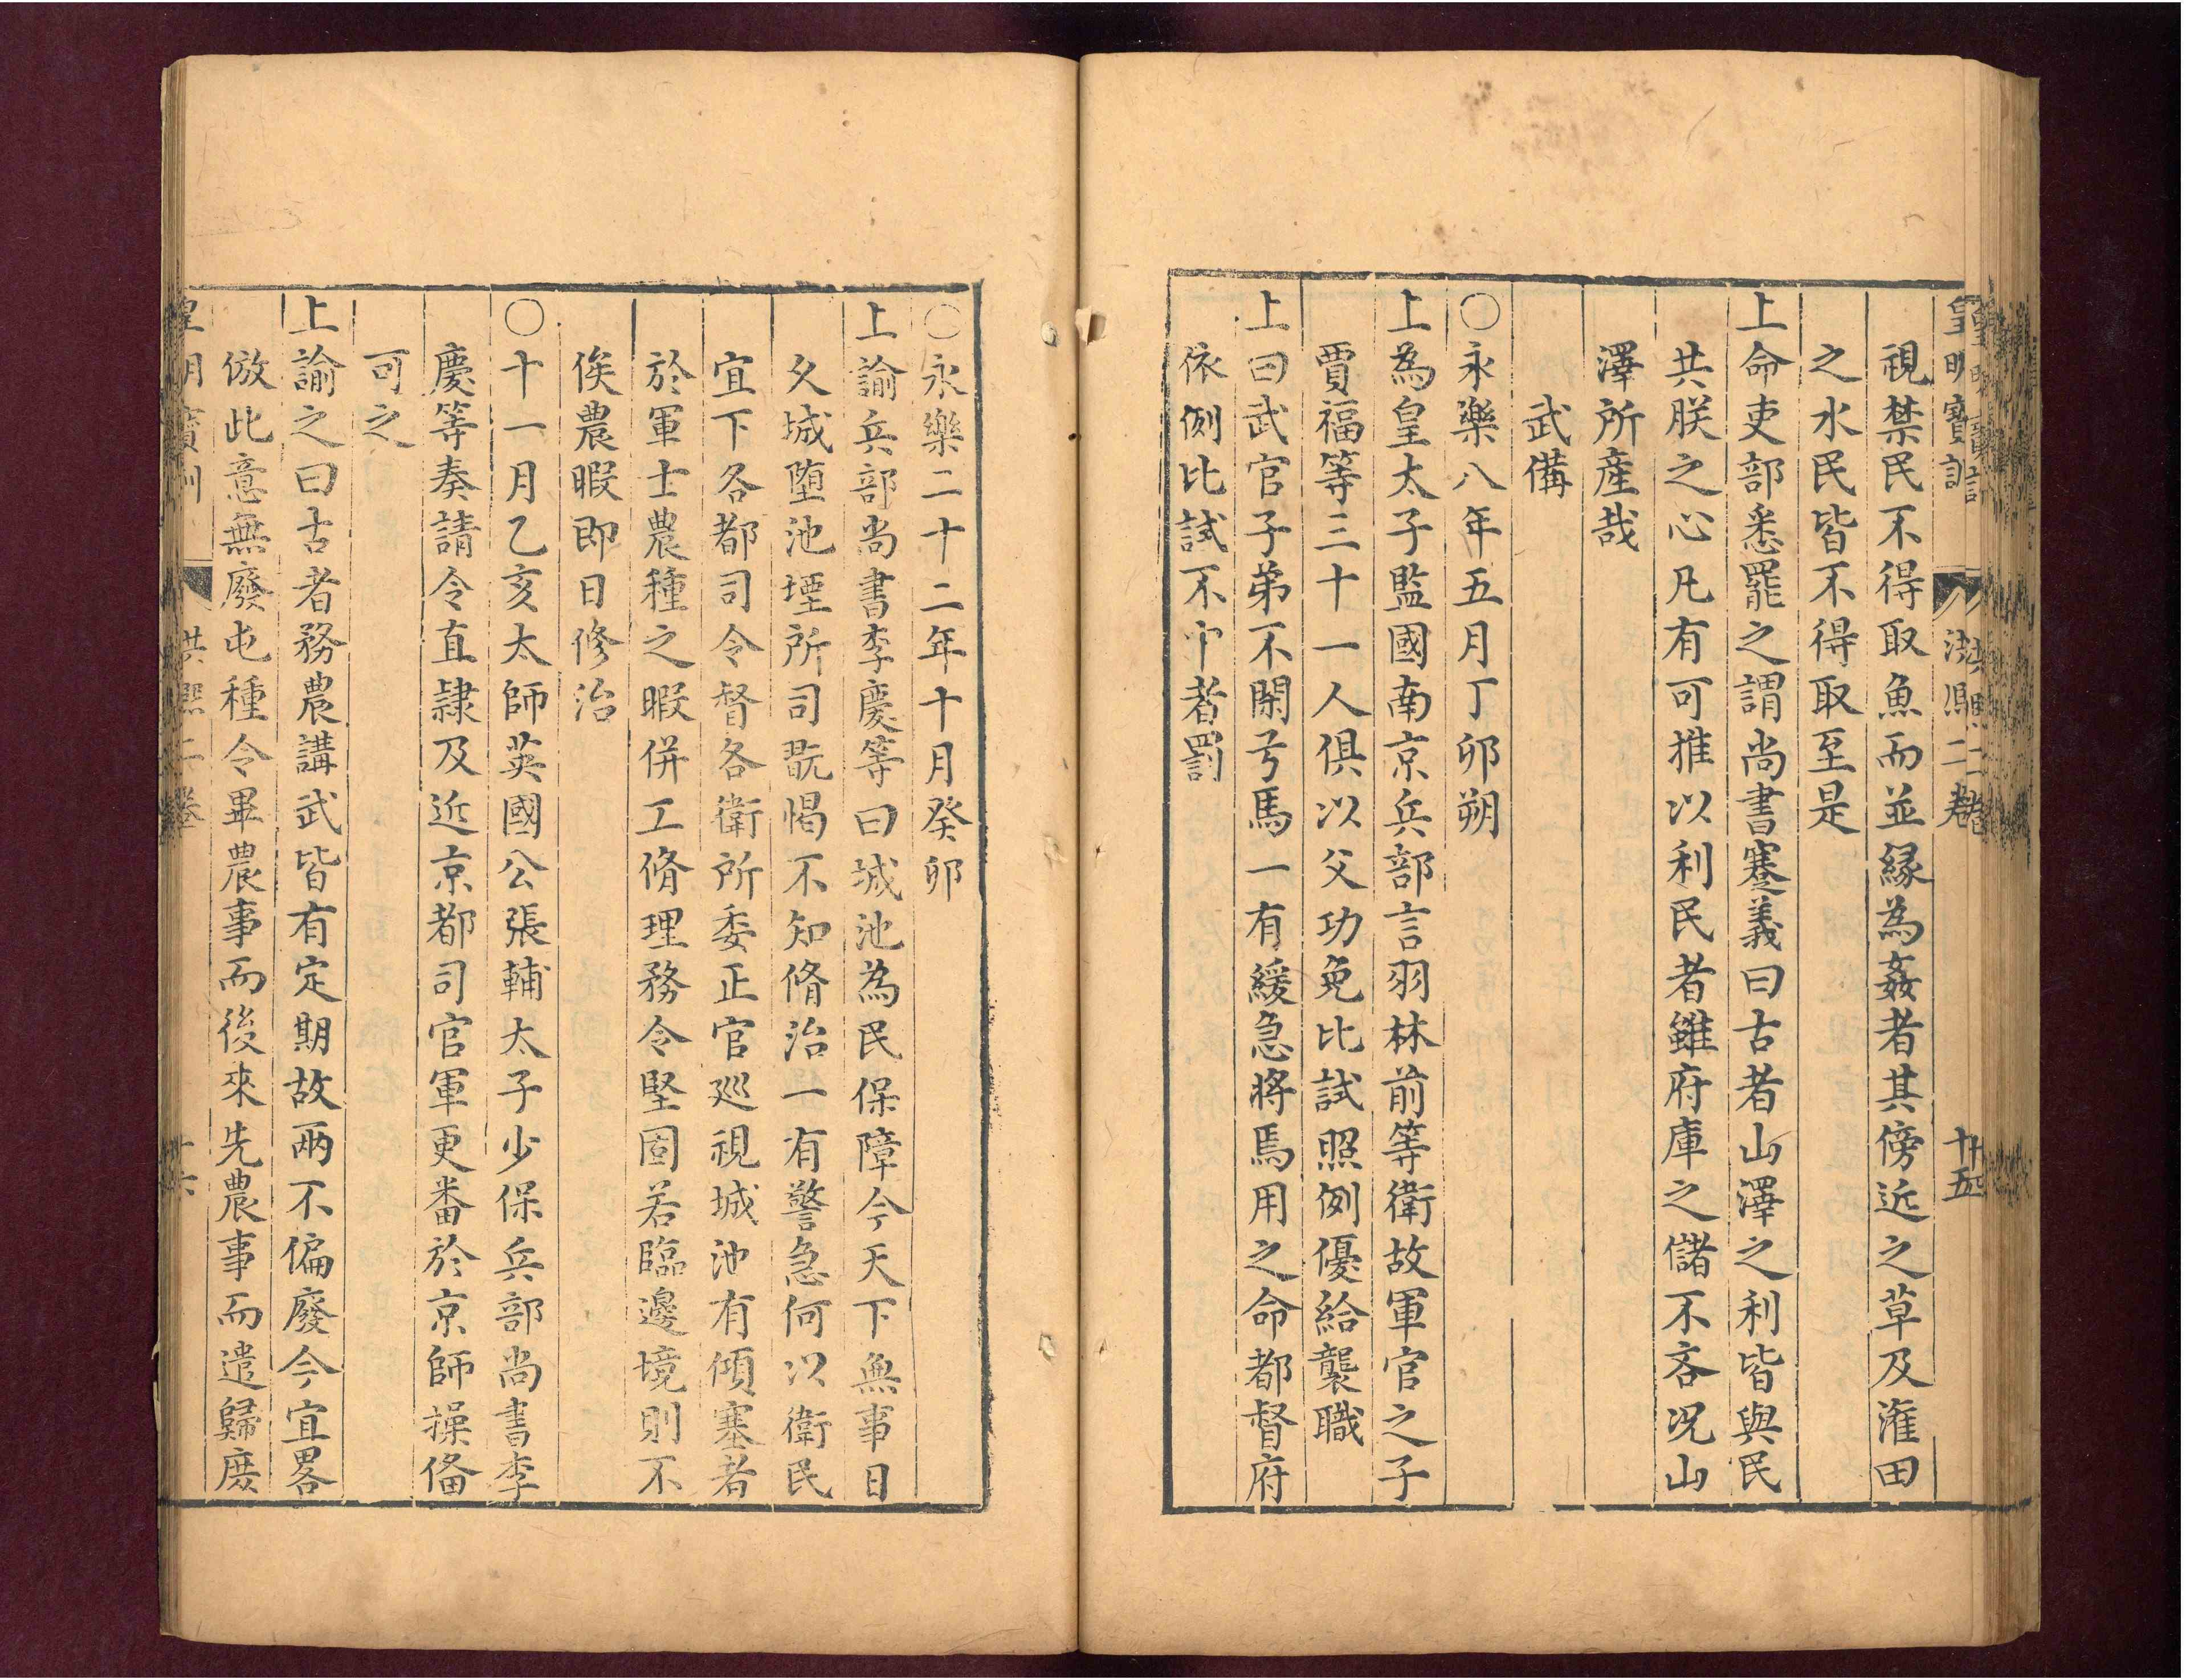 皇明寶訓 洪熙二卷 十五
視禁民不得取魚而並縁為姦者其傍近之草及滙田
之水民皆不得取至是
上命吏部悉罷之謂尚書蹇義曰古者山澤之利皆與民
共朕之心凡有可推以利民者雖府庫之儲不吝况山
澤所産哉
武備
○永樂八年五月丁卯朔
上為皇太子監國南京兵部言羽林前等衛故軍官之子
賈福等三十一人俱以父功免比試照例優給襲職
上曰武官子弟不閑弓馬一有緩急將焉用之命都督府
依例比試不中者罰
○永樂二十二年十月癸卯
上諭兵部尚書李慶等曰城池為民保障今天下無事日
久城堕池堙所司翫愒不知脩治一有警急何以衛民
宜下各都司令督各衛所委正官廵視城池有傾塞者
於軍士農種之暇併工脩理務令堅固若臨邊境則不
俟農暇即日修治
○十一月乙亥太師英國公張輔太子少保兵部尚書李
慶等奏請令直隷及近京都司官軍更番於京師操俻
可之
上諭之曰古者務農講武皆有定期故兩不偏廢今宜畧
倣此意無廢屯種令畢農事而後來先農事而遣歸庶
皇明寶訓 洪熙二卷 十六